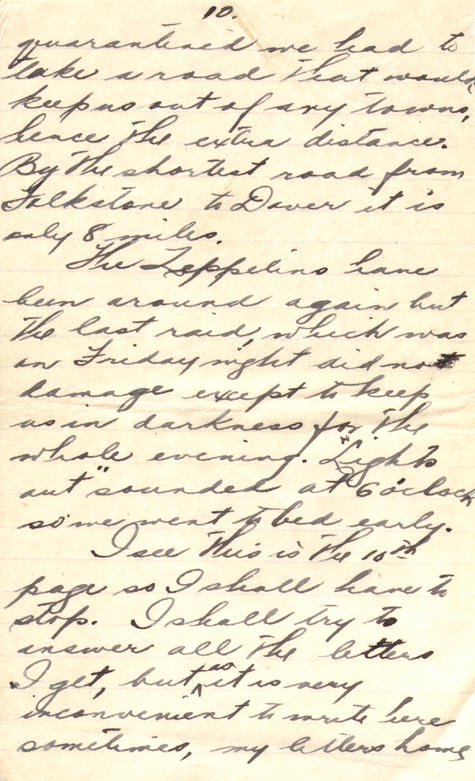 10.
quarantined we had to
take a road that would
keep us out of any towns,
hence the extra distance.
By the shortest road from
Folkstone to Dover it is
only 8 miles.
The Zeppelins have
been around again but
the last raid, which was
on Friday night did no
damage except to keep
us in darkness for the
whole evening. "Lights
out" sounded at 6 o'clock
so we went to bed early.
I see this is the 10th
page so I shall have to
stop. I shall try to
answer all the letters
I get, but as it is very
inconvenient to write here
sometimes, my letters home